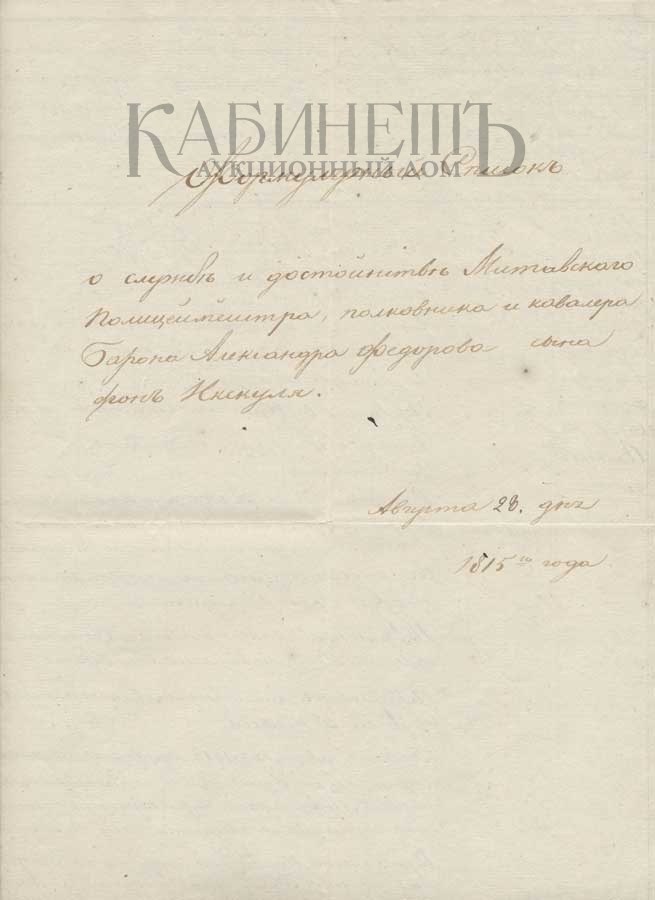 КАБИНЕТЪ
АУКЦИОННЫЙ ДОМ
Формулярный Списокъ
о службѣ и достоинствѣ Митавскаго
Полицеймейстра, полковника и кавалера
Барона Александра Федорова сына
фонъ Икскуля.
Августа 28. дня
1815го года